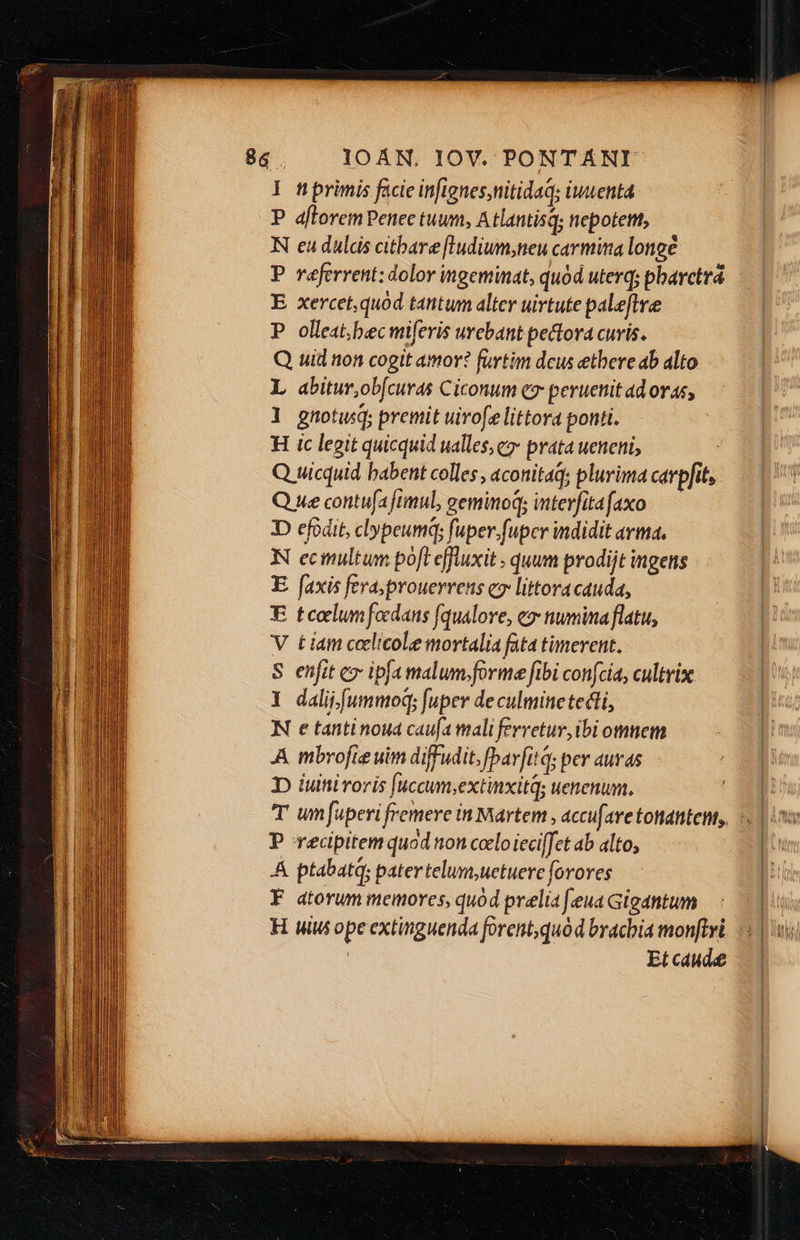 86 IOAN. IOV. PONTANI
I n primis facie insignes, nitidaq; iuuenta
P astorem Penee tuum, Atlantisq; nepotem,
N eu dulcis citharæ studium, neu carmina longè
P ræferrent: dolor ingeminat, quòd uterq; pharetrã
E xercet, quòd tantum alter uirtute palestræ
P olleat, hæc miseris urebant pectora curis.
Q uid non cogit amor? furtim deus æthere ab alto
L abitur, obscuras Ciconum & peruenit ad oras,
I gnotusq; premit uirosæ littora ponti.
H ic legit quicquid ualles, & prata ueneni,
Q uicquid habent colles, aconitaq; plurima carpsit,
Q uæ contusa simul, geminoq; interfita saxo
D efodit, clypeumq; super, super indidit arma.
N ec multum pòst effluxit, quum prodijt ingens
E saxis fera, prouerrens & littora cauda,
E t cœlum fœdans squalore, & numina flatu,
V t iam cœlicolæ mortalia fata timerent.
S ensit & ipsa malum, formæ sibi conscia, cultrix
I dalij, summoq; super de culmine tecti,
N e tanti noua causa mali ferretur, ibi omnem
A mbrosiæ uim diffudit, sparsitq; per auras
D iuini roris succum, extinxitq; uenenum.
T um superi fremere in Martem, accusare tonantem,
P recipitem quòd non cœlo ieciffet ab alto,
A ptabatq; pater telum, uetuere sorores
F atorum memores, quòd prælia sæua Gigantum
H uius ope extinguenda forent, quòd brachia monstri
Et caudæ